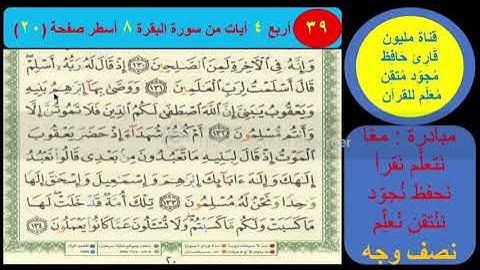 ٣٩ أربع ٤ أيات من سورة البقرة ٨ أسطر صفحة (٢٠)
قناة مليون
قارئ حافظ
مُجوّد مُتقن
مُعلّم للقرآن
وَإِنَّهُ فِي الْآخِرَةِ لَمِنَ الصَّالِحِينَ ١٣٠ إِذْ قَالَ لَهُ رَبُّهُ أَسْلِمْ
قَالَ أَسْلَمْتُ لِرَبِّ الْعَالَمِينَ ١٣١ وَوَصَّىٰ بِهَا إِبْرَاهِيمُ بَنِيهِ
وَيَعْقُوبُ يَا بَنِيَّ إِنَّ اللَّهَ اصْطَفَىٰ لَكُمُ الدِّينَ فَلَا تَمُوتُنَّ إِلَّا
وَأَنتُم مُّسْلِمُونَ ١٣٢ أَمْ كُنتُمْ شُهَدَاءَ إِذْ حَضَرَ يَعْقُوبَ
الْمَوْتُ إِذْ قَالَ لِبَنِيهِ مَا تَعْبُدُونَ مِن بَعْدِي قَالُوا نَعْبُدُ
إِلَٰهَكَ وَإِلَٰهَ آبَائِكَ إِبْرَاهِيمَ وَإِسْمَاعِيلَ وَإِسْحَاقَ إِلَٰهًا
وَاحِدًا وَنَحْنُ لَهُ مُسْلِمُونَ ١٣٣ تِلْكَ أُمَّةٌ قَدْ خَلَتْ لَهَا
مَا كَسَبَتْ وَلَكُم مَّا كَسَبْتُمْ وَلَا تُسْأَلُونَ عَمَّا كَانُوا يَعْمَلُونَ ١٣٤
٢٠
مبادرة : معًا
نتعلّم نقرأ
نحفظ نُجوّد
نُتقن نُعلّم
نصف وجه